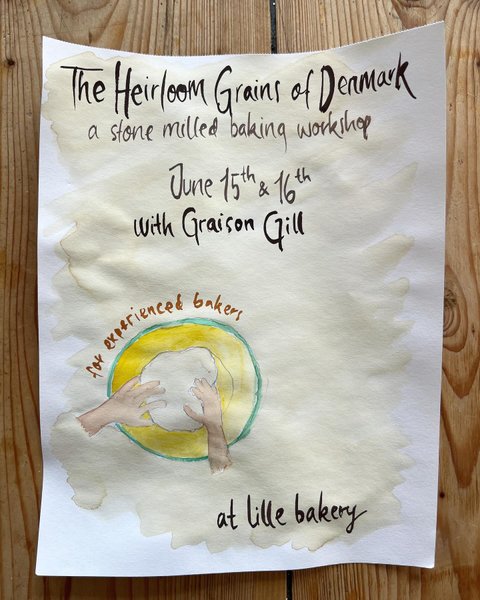 The Heirloom Grains of Denmark
a stone milled baking workshop
June 15th & 16th
with Graison Gill
for experienced bakers
at lille bakery